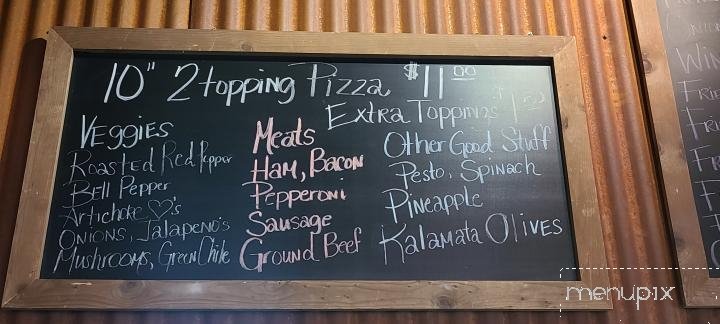 10" 2 topping Pizza $11.00
Extra Toppings
Veggies
Roasted Red Pepper
Bell Pepper
Artichoke ♡'s
Onions, Jalapeno's
Mushrooms, Green Chile
Meats
Ham, Bacon
Pepperoni
Sausage
Ground Beef
Other Good Stuff
Pesto, Spinach
Pineapple
Kalamata Olives
menupix